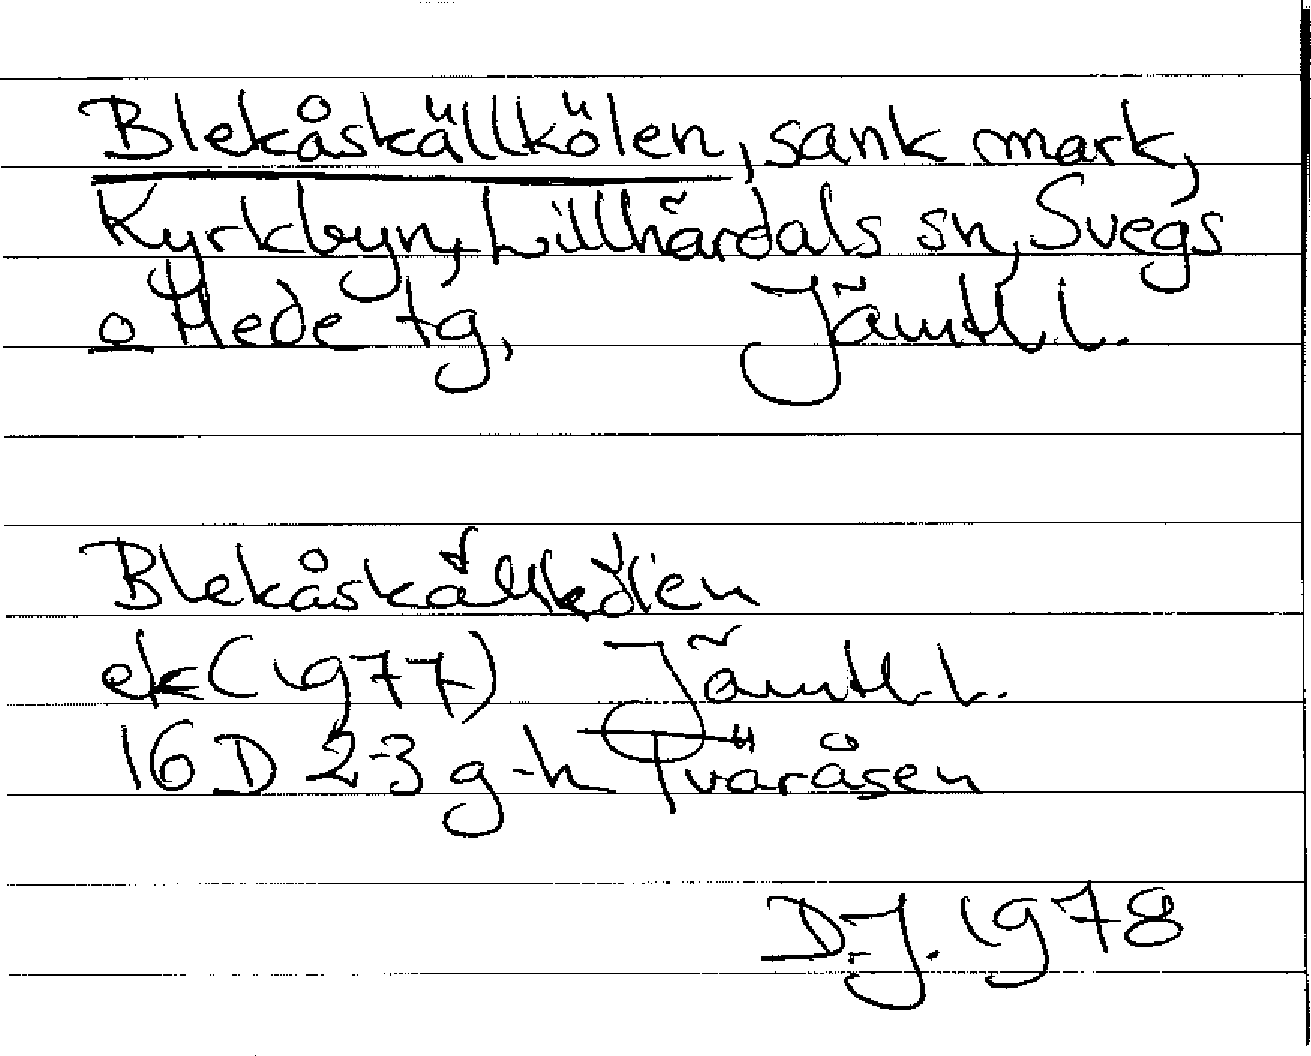 Blekåskällkölen, sank mark,
Kyrkbyn, Lillhärdals sn, Svegs
o Hede tg, Jämtl. l.
Blekåskällkölen
ek (1977) Jämtl. l.
16 D 2-3 g-h Tväråsen
D-J. 1978